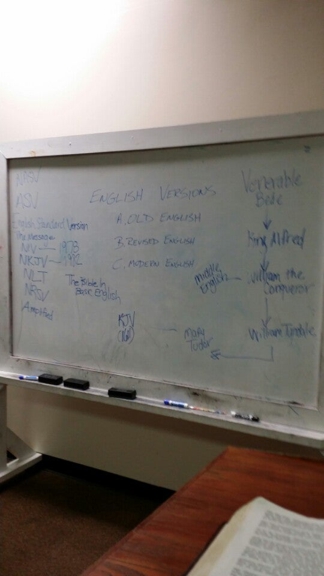 ASV
English Standard Version
The Message
NIV — 1978
NKJV — 1982
NLT
NRSV
Amplified
ENGLISH VERSIONS
A. OLD ENGLISH
B. REVISED ENGLISH
C. MODERN ENGLISH
The Bible in
Basic English
KJV
Mary
Tudor
Venerable
Bede
King Alfred
Middle
English
William the
Conqueror
William